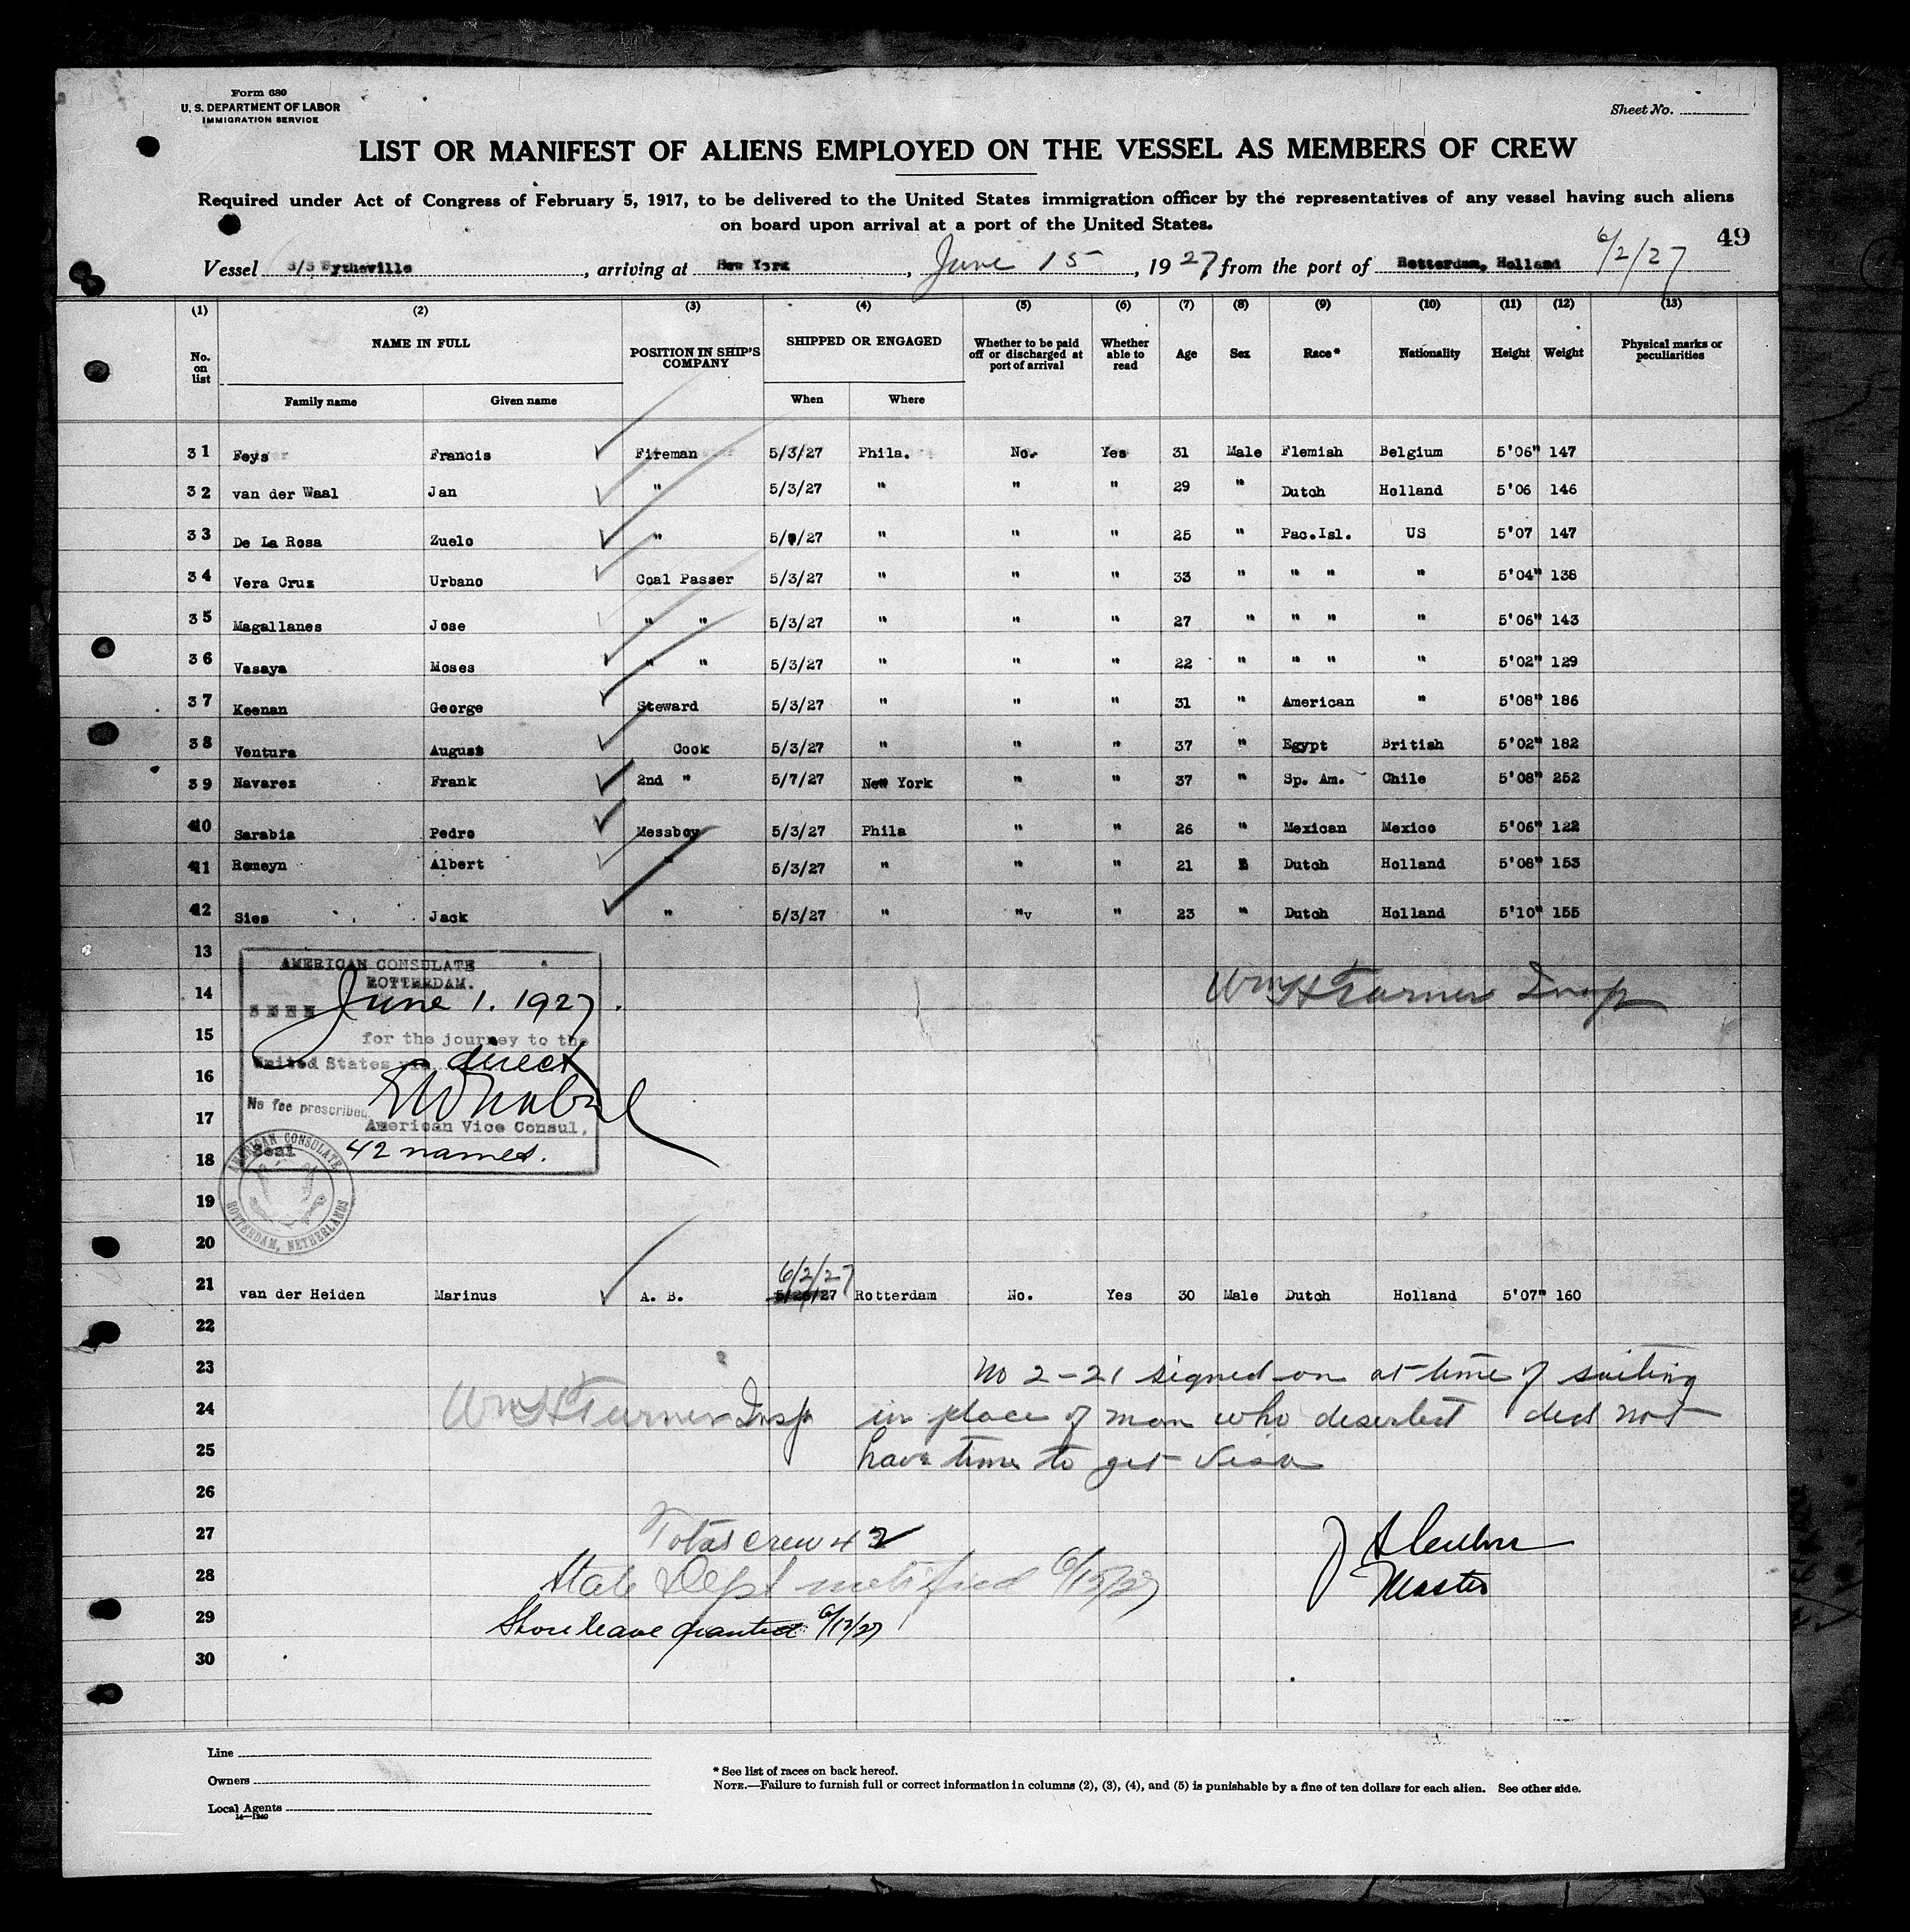 Form 680
U. S. DEPARTMENT OF LABOR
IMMIGRATION SERVICE
Sheet No.
LIST OR MANIFEST OF ALIENS EMPLOYED ON THE VESSEL AS MEMBERS OF CREW
Required under Act of Congress of February 5, 1917, to be delivered to the United States immigration officer by the representatives of any vessel having such aliens
on board upon arrival at a port of the United States.
49
Vessel S/S Wytheville, arriving at New York, June 15, 1927 from the port of Rotterdam, Holland 6/2/27
(1) (2) (3) (4) (5) (6) (7) (8) (9) (10) (11) (12) (13)
No. on list NAME IN FULL POSITION IN SHIP'S COMPANY SHIPPED OR ENGAGED Whether to be paid off or discharged at port of arrival Whether able to read Age Sex Race* Nationality Height Weight Physical marks or peculiarities
Family name Given name When Where
31 Feys Francis Fireman 5/3/27 Phila. No. Yes 31 Male Flemish Belgium 5'06" 147
32 van der Waal Jan " 5/3/27 " " " 29 " Dutch Holland 5'06 146
33 De La Rosa Zuelo " 5/ /27 " " " 25 " Pac.Isl. US 5'07 147
34 Vera Cruz Urbano Coal Passer 5/3/27 " " " 33 " " " " 5'04" 138
35 Magallanes Jose " " 5/3/27 " " " 27 " " " " 5'06" 143
36 Vasaya Moses " " 5/3/27 " " " 22 " " " " 5'02" 129
37 Keenan George Steward 5/3/27 " " " 31 " American " 5'08" 186
38 Ventura August Cook 5/3/27 " " " 37 " Egypt British 5'02" 182
39 Navarez Frank 2nd " 5/7/27 New York " " 37 " Sp. Am. Chile 5'08" 252
40 Sarabia Pedro Messboy 5/3/27 Phila " " 26 " Mexican Mexico 5'06" 122
41 Romeyn Albert " 5/3/27 " " " 21 Dutch Holland 5'08" 153
42 Sies Jack " 5/3/27 " "v " 23 " Dutch Holland 5'10" 155
13
AMERICAN CONSULATE
ROTTERDAM.
14 Wm H Turner Insp
SEEN June 1. 1927.
15
for the journey to the
United States via direct
16
No fee prescribed.
17
American Vice Consul,
Seal 42 names.
18
AMERICAN CONSULATE
ROTTERDAM, NETHERLANDS
19
20
6/2/27
21 van der Heiden Marinus A. B. 5/28/27 Rotterdam No. Yes 30 Male Dutch Holland 5'07" 160
22
23 No 2-21 signed on at time of sailing
24 Wm H Turner Insp in place of man who deserted did not
25 have time to get visa
26
27 Total crew 42
28 State Dept notified 6/15/27
Master
29 Shore leave granted 6/15/27
30
Line
Owners
Local Agents
14—1240
* See list of races on back hereof.
NOTE.—Failure to furnish full or correct information in columns (2), (3), (4), and (5) is punishable by a fine of ten dollars for each alien. See other side.